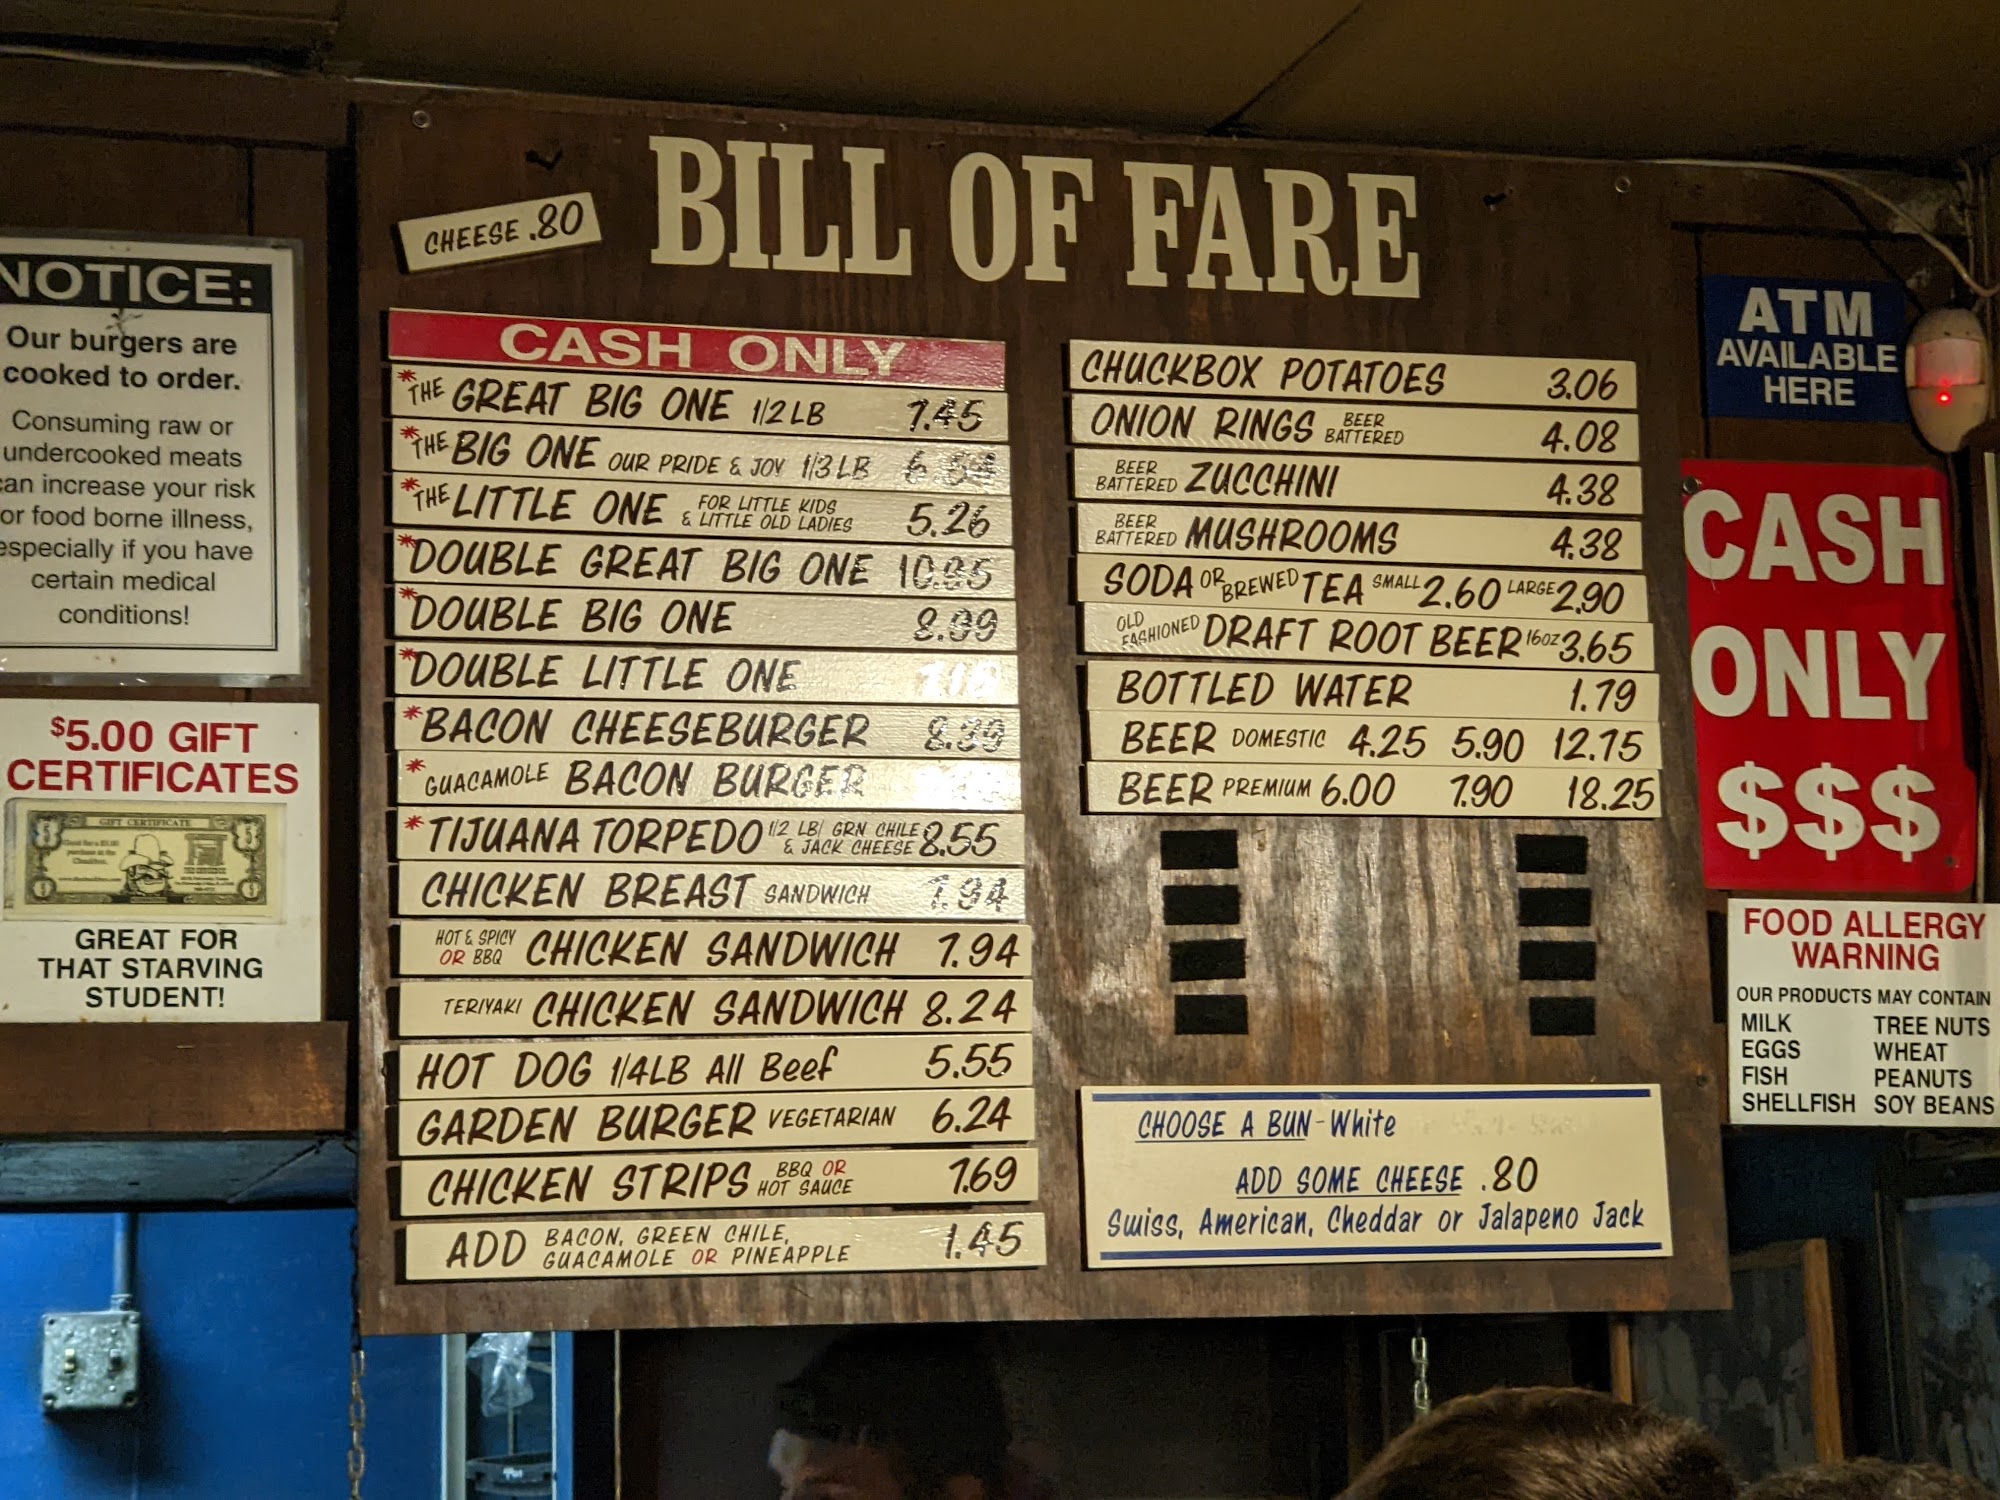 NOTICE:
Our burgers are
cooked to order.
Consuming raw or
undercooked meats
can increase your risk
or food borne illness,
especially if you have
certain medical
conditions!
$5.00 GIFT
CERTIFICATES
GIFT CERTIFICATE
GREAT FOR
THAT STARVING
STUDENT!
CHEESE .80
BILL OF FARE
CASH ONLY
*THE GREAT BIG ONE 1/2 LB 7.45
*THE BIG ONE OUR PRIDE & JOY 1/3 LB
*THE LITTLE ONE FOR LITTLE KIDS & LITTLE OLD LADIES 5.26
*DOUBLE GREAT BIG ONE
*DOUBLE BIG ONE 8.99
*DOUBLE LITTLE ONE
*BACON CHEESEBURGER
*GUACAMOLE BACON BURGER
*TIJUANA TORPEDO 1/2 LB/ GRN CHILE & JACK CHEESE 8.55
CHICKEN BREAST SANDWICH 7.94
HOT & SPICY OR BBQ CHICKEN SANDWICH 7.94
TERIYAKI CHICKEN SANDWICH 8.24
HOT DOG 1/4LB All Beef 5.55
GARDEN BURGER VEGETARIAN 6.24
CHICKEN STRIPS BBQ OR HOT SAUCE 7.69
ADD BACON, GREEN CHILE, GUACAMOLE OR PINEAPPLE 1.45
CHUCKBOX POTATOES 3.06
ONION RINGS BEER BATTERED 4.08
BEER BATTERED ZUCCHINI 4.38
BEER BATTERED MUSHROOMS 4.38
SODA OR BREWED TEA SMALL 2.60 LARGE 2.90
OLD FASHIONED DRAFT ROOT BEER 16OZ 3.65
BOTTLED WATER 1.79
BEER DOMESTIC 4.25 5.90 12.75
BEER PREMIUM 6.00 7.90 18.25
CHOOSE A BUN - White
ADD SOME CHEESE .80
Swiss, American, Cheddar or Jalapeno Jack
ATM
AVAILABLE
HERE
CASH
ONLY
$$$
FOOD ALLERGY
WARNING
OUR PRODUCTS MAY CONTAIN
MILK TREE NUTS
EGGS WHEAT
FISH PEANUTS
SHELLFISH SOY BEANS